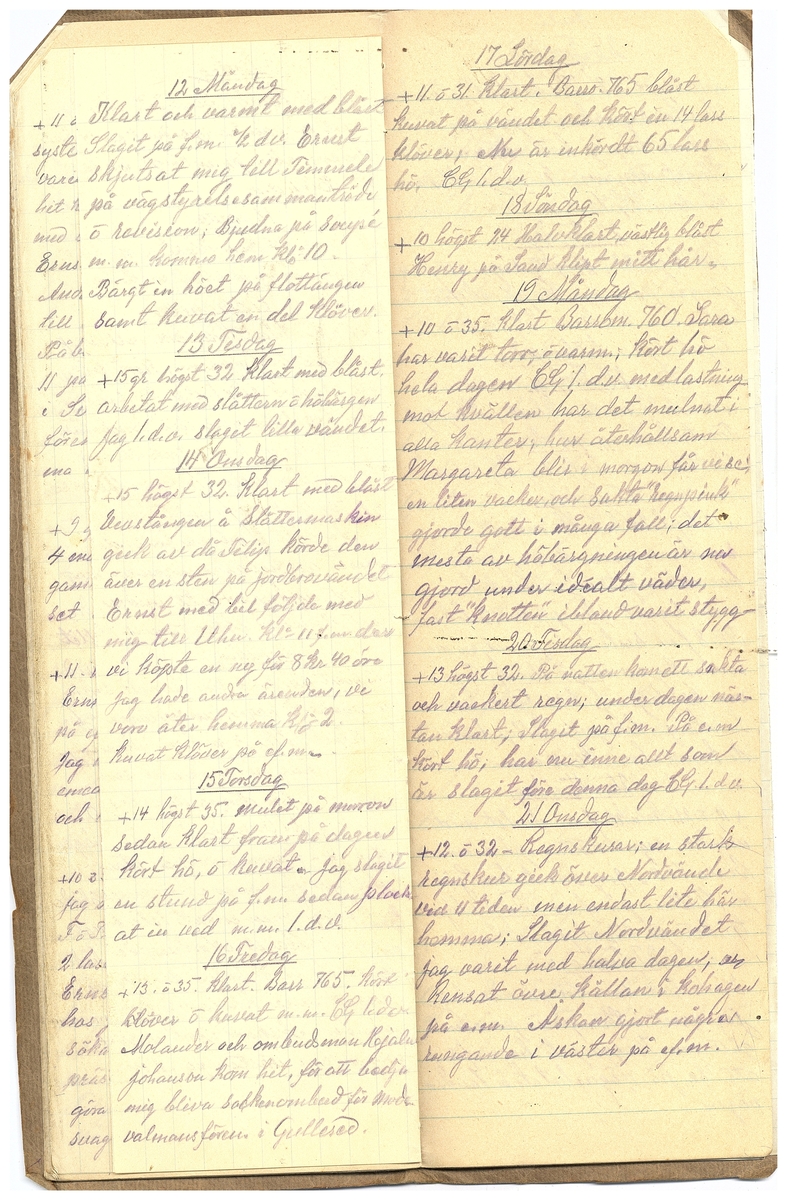 12 Måndag
Klart och varmt med blåst
Slagit på f.m. ½ d.v. Ernst
skjutsat mig till Timmele
på vägstyrelsesammanträde
ö revision; Bjudna på
m.m. kommo hem kl. 10.
Bärgt in höet på flottängen
samt kuvat en del klöver.
13 Tisdag
+15 gr högst 32 Klart med blåst.
arbetat med slåttern ö höbärgen
Jag 1. d.v. slagit lilla vändet.
14 Onsdag
+15 högst 32. Klart med blåst
Vevstången å Slåttermaskin
gick av då Filip körde den
över en sten på jordbrovändet
Ernst med bil följde med
mig till Uhn. kl. 11 f.m. där
vi köpte en ny för 8 kr 40 öre
jag hade andra ärenden, vi
voro åter hemma kl. 2.
kuvat klöver på ef.m.
15 Torsdag
+14 högst 35. mulet på morron
sedan klart fram på dagen
kört hö, ö kuvat. jag slagit
en stund på f.m. sedan plock-
at in ved m.m. 1. d.v.
16 Fredag
+13. ö 35. Klart. Barr 765. Kört
klöver ö kuvat m.m. CG 1. d.v.
Molander och ombudsman Hjalm
Johanson kom hit, för att bedja
mig bliva sockenombud för Mode
valmansfören. i Gullered.
+11
syste
vare
het
med
Erns
And
till
På b
11 på
i Se
fören
ma
+9 g
4 en
gam
set
+11.
Erns
på e
Jag
emed
och
+10
jag
F ö
2 las
Erns
hos
söka
präs
göra
svag
17 Lördag
+11. ö 31. Klart. Barro. 765 blåst
kuvat på vändet och kört in 14 lass
klöver; Nu är inkördt 65 lass
hö. CG 1. d.v.
18 Söndag
+10 högst 24 Halvklart, västlig blåst
Henry på Sand klipt mitt hår.
19 Måndag
+10 ö 35. Klart Barrom. 760. Sara
har varit torr, ö varm; Kört hö
hela dagen CG 1. d.v. med lastning
mot kvällen har det mulnat i
alla kanter, hur återhållsam
Margareta blir i morgon får vi se,
en liten vacker, och sakta "Regnpink"
gjorde gott i många fall; det
mesta av höbärgningen är nu
gjord under idealt väder,
fast "Knotten" ibland varit stygg
20 Tisdag
+13 högst 32. På natten kom ett sakta
och vackert regn; under dagen näs-
tan klart; Slagit på f.m. På e.m
kört hö; har nu inne allt som
är slaget före denna dag CG 1. d.v.
21 Onsdag
+12. ö 32 - Regnskurar; en stark
regnskur gick över Nordvände
vid 4 tiden men endast lite här
hemma; Slagit Nordvändet
jag varit med halva dagen,
Rensat övre Källan i Kohagen
på e.m. Åskan gjort några
rungande i väster på ef.m.